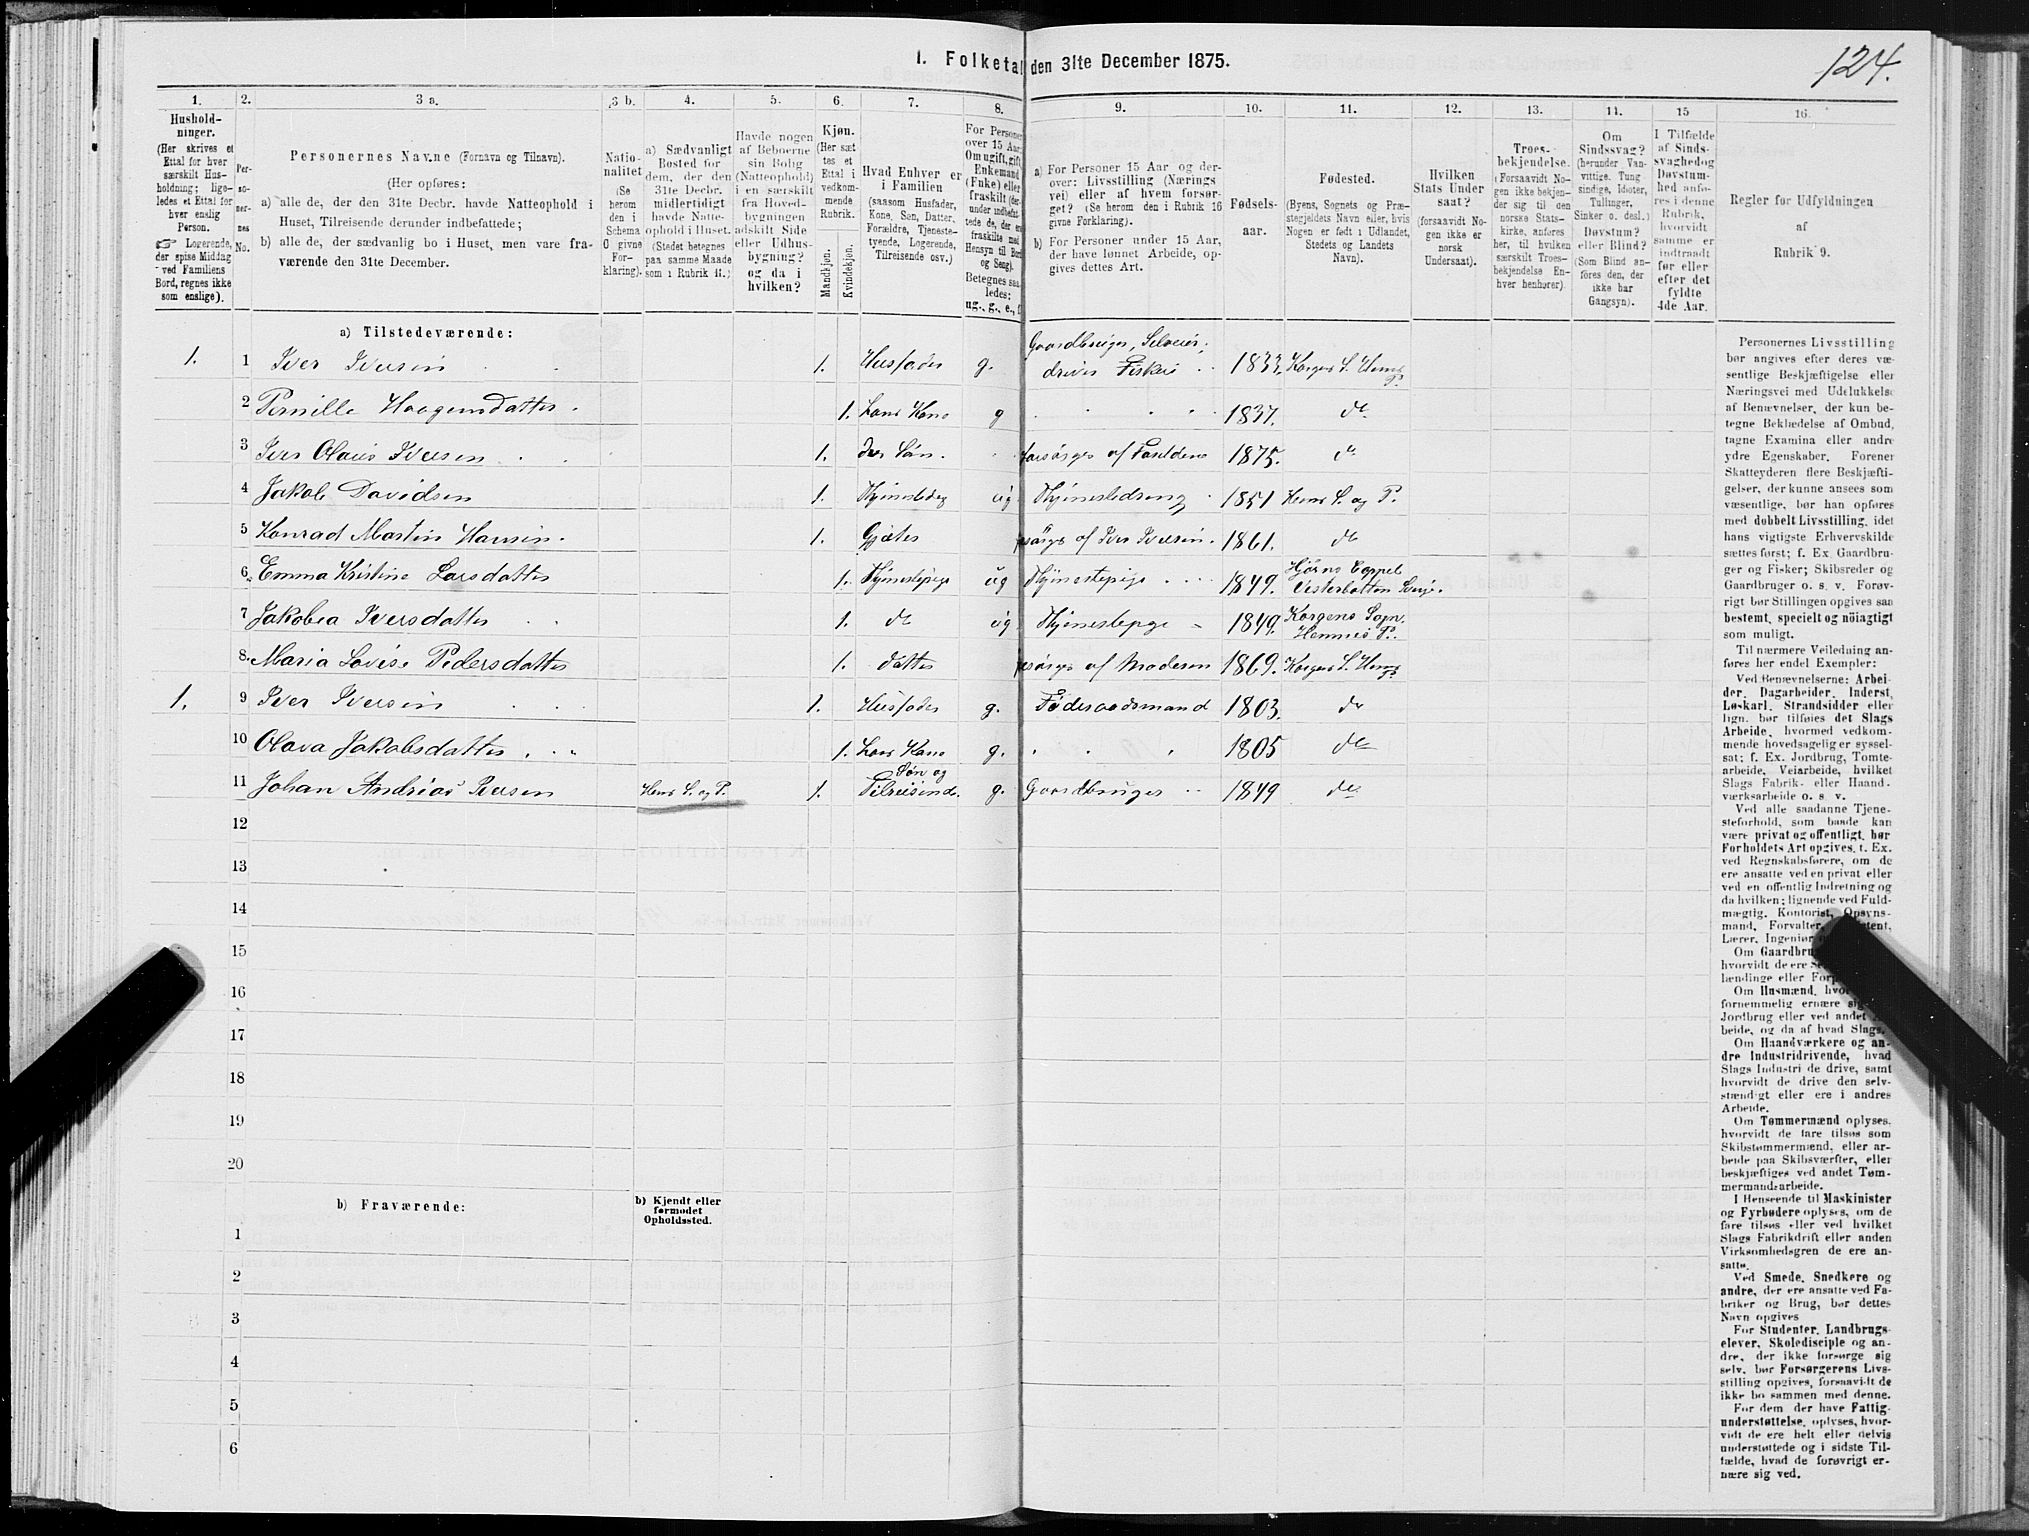 124.
I. Folketal den 31te December 1875.
1. 2. 3 a. 3 b. 4. 5. 6. 7. 8. 9. 10. 11. 12. 13. 14. 15 16.
Hushold-
ninger.
(Her skrives et
Ettal for hver
særskilt Hus-
holdning; lige-
ledes et Ettal for
hver enslig
Person.
☞ Logerende,
der spise Middag
ved Familiens
Bord, regnes ikke
som enslige).
Per-
so-
ner-
nes
No.
Personernes Navne (Fornavn og Tilnavn).
(Her opføres:
a) alle de, der den 31te Decbr. havde Natteophold i
Huset, Tilreisende derunder indbefattede;
b) alle de, der sædvanlig bo i Huset, men vare fra-
værende den 31te December.
Natio-
nalitet
(Se
herom
den i
Schema
O givne
For-
klaring).
a) Sædvanligt
Bosted for
dem, der den
31te Decbr.
midlertidigt
havde Natte-
ophold i Huset.
(Stedet betegnes
paa samme Maade
som i Rubrik 11.)
Havde nogen
af Beboerne
sin Bolig
(Natteophold)
i en særskilt
fra Hoved-
bygningen
adskilt Side
eller Udhus-
bygning?
og da i
hvilken?
Kjøn.
(Her sæt-
tes et
Ettal i
vedkom-
mende
Rubrik.
Mandkjøn.
Kvindekjøn.
Hvad Enhver er
i Familien
(saasom Husfader,
Kone, Søn, Datter,
Forældre, Tjeneste-
tyende, Logerende,
Tilreisende osv.)
For Personer
over 15 Aar:
Om ugift, gift,
Enkemand
(Enke) eller
fraskilt
Betegnes saa-
ledes:
ug., g., e., f.
a) For Personer 15 Aar og der-
over: Livsstilling (Nærings
vei) eller af hvem forsør-
get? (Se herom den i Rubrik 16
givne Forklaring).
b) For Personer under 15 Aar,
der have lønnet Arbeide, op-
gives dettes Art.
Fødsels-
aar.
Fødested.
(Byens, Sognets og Præ-
stegjeldets Navn eller, hvis
Nogen er født i Udlandet,
Stedets og Landets
Navn).
Hvilken
Stats Under
saat?
(forsaavidt No-
gen ikke er
norsk
Undersaat).
Troes-
bekjendelse.
(Forsaavidt No-
gen ikke bekjen-
der sig til den
norske Stats-
kirke, anføres
her, til hvilken
særskilt Troes-
bekjendelse En-
hver henhører).
Om
Sindssvag?
(herunder Van-
vittige, Tung
sindige, Idioter,
Tullinger,
Sinker o. desl.)
Døvstum?
eller Blind?
(Som Blind an-
føres den, der
ikke har
Gangsyn).
I Tilfælde
af Sinds-
svaghed og
Døvstum-
hed anfø-
res i denne
Rubrik,
hvorvidt
samme er
indtraadt
før eller
efter det
fyldte
4de Aar.
Regler for Udfyldningen
af
Rubrik 9.
a) Tilstedeværende:
1. 1 Iver Iversen 1. Husfader g. Gaardbruger, Selveier, driver Fiskeri 1833. Korgen S. Hemnes P.
2 Pernille Haagensdatter. 1. hans Kone g 1837. do
3 Iver Olaus Iversen 1. deres Søn. Forsørges af Forældrene 1875. do
4 Jakob Davidsen 1. Tjenestedreng ug Tjenestedreng 1851 Hemnes S. og P.
5 Konrad Martin Hansen. 1. Gjæter forsørges af Iver Iversen. 1861. do
6. Emma Kristine Larsdatter 1. Tjenestepige ug Tjenestepige 1849. Vesterbotten Sverige.
7 Jakobea Iversdatter 1. do ug Tjenestepige 1849. Korgens Sogn, Hemnes P.
8. Maria Lovise Pedersdatter 1. datter forsørges af Moderen 1869. Korgens S. Hemnes P.
1. 9 Iver Iversen 1. Husfader g. Føderaadsmand 1803. do
10 Olava Jakobsdatter 1. hans Kone g. 1805 do
11 Johan Andreas Iversen Hemnes S. og P. 1. Søn og Tilreisende. g. Gaardbruger 1849 do
12
13
14
15
16
17
18
19
20
b) Fraværende:
b) Kjendt eller
formodet
Opholdssted.
1
2
3
4
5
6
Personernes Livsstilling
bør angives efter deres væ-
sentlige Beskjæftigelse eller
Næringsvei med Udelukkelse
af Benævnelser, der kun be-
tegne Beklædelse af Ombud,
tagne Examina eller andre
ydre Egenskaber. Forener
Skatteyderen flere Beskjæfti-
gelser, der kunne ansees som
væsentlige, bør han opføres
med dobbelt Livsstilling, idet
hans vigtigste Erhvervskilde
sættes først; f. Ex. Gaardbru-
ger og Fisker; Skibsreder og
Gaardbruger o. s. v. Forøv-
rigt bør Stillingen opgives saa
bestemt, specielt og nöiagtigt
som muligt.
Til nærmere Veiledning an-
føres her endel Exempler:
Ved Benævnelserne: Arbei-
der, Dagarbeider, Inderst,
Løskarl, Strandsidder eller
lign. bør tilføies det Slags
Arbeide, hvormed vedkom-
mende hovedsagelig er syssel-
sat; f. Ex. Jordbrug, Tomte-
arbeide, Veiarbeide, hvilket
Slags Fabrik- eller Haand-
værksarbeide o. s. v.
Ved alle saadanne Tjene-
steforhold, som baade kan
være privat og offentligt, bør
Forholdets Art opgives, t. Ex.
ved Regnskabsførere, om de
ere ansatte ved en privat eller
ved en offentlig Indretning og
da hvilken; lignende ved Fuld-
mægtig, Kontorist, Opsyns-
mand, Forvalter,
Lærer, Ingeniør
Om Gaardbru
hvorvidt de ere
lændinge eller
Om Husmænd,
fornemmelig ernære
Jordbrug eller ved andet
beide, og da af hvad Slags.
Om Haandværkere og an-
dre Industridrivende, hvad
Slags Industri de drive, samt
hvorvidt de drive den selv-
stændigt eller ere i andres
Arbeide.
Om Tømmermænd oplyses,
hvorvidt de fare tilsøs som
Skibstømmermænd, eller ar-
beide paa Skibsværfter, eller
beskjæftiges ved andet Tøm-
mermandsarbeide.
I Henseende til Maskinister
og Fyrbødere oplyses, om de
fare tilsøs eller ved hvilket
Slags Fabrikdrift eller anden
Virksomhedsgren de ere an-
satte.
Ved Smede, Snedkere og
andre, der ere ansatte ved Fa-
briker og Brug, bør dettes
Navn opgives
For Studenter, Landbrugs-
elever, Skoledisciple og an-
dre, der ikke forsørge sig
selv, bør Forsørgerens Livs-
stilling opgives, forsaavidt de
ikke bo sammen med denne.
For dem der have Fattig-
understøttelse, oplyses, hvor-
vidt de ere helt eller delvis
understøttede og i sidste Til-
fælde, hvad de forøvrigt er-
nære sig ved.